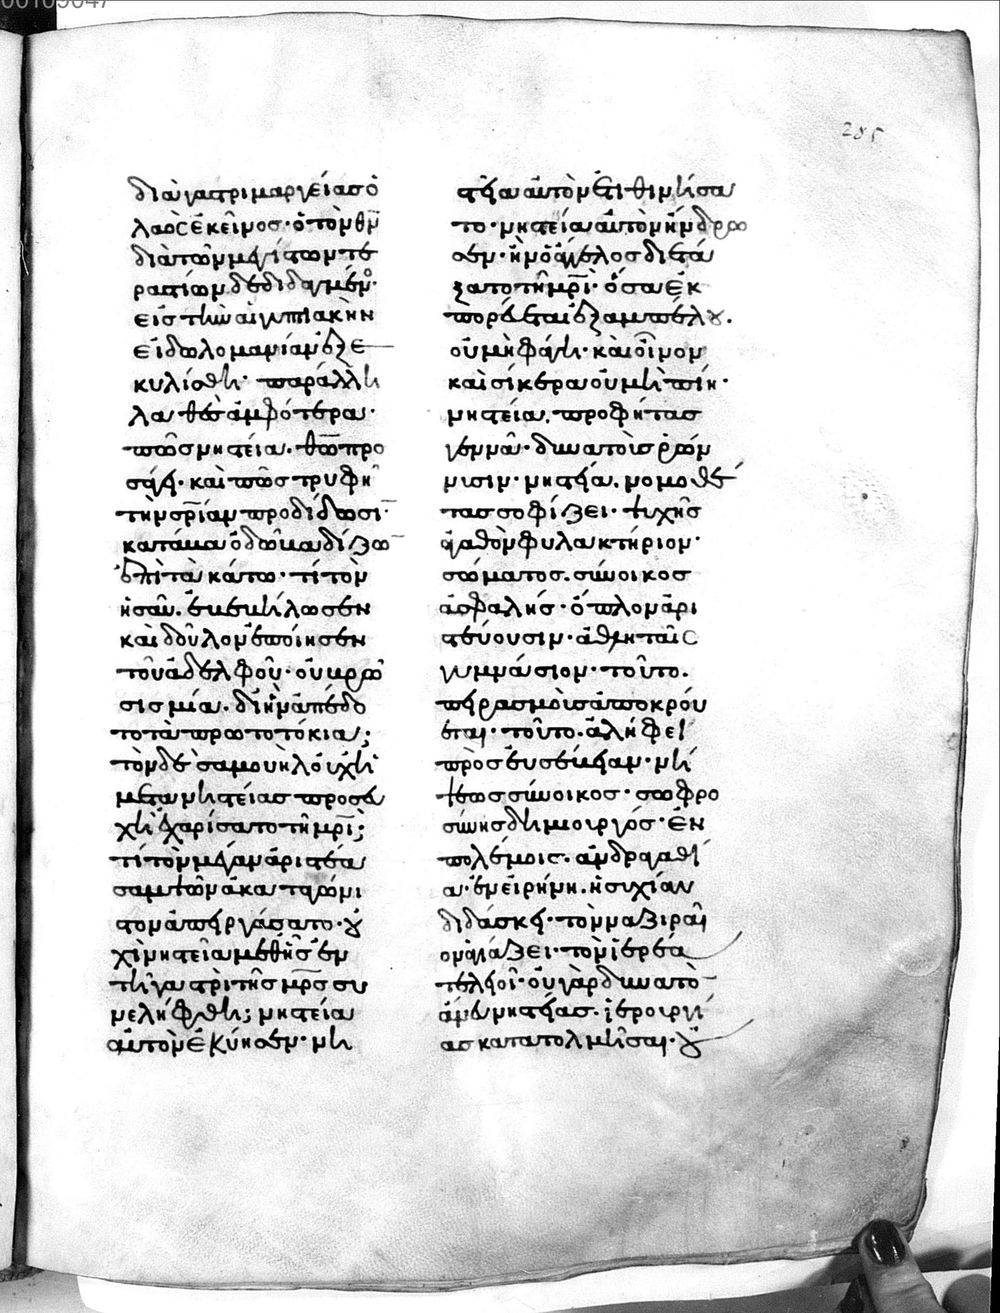 00109047
285
διὰ γαστριμαργείας ὁ
λαὸς ἐκεῖνος· ὁ τὸν θν̄
διὰ τῶν μεγίστων τε
ρατίων δεδιδαγμένος·
εἰς τὴν αἰγυπτιακὴν
εἰδωλομανίαν ἐξε
κυλίσθη· παράλλη
λα θὲς ἀμφότερα·
πῶς νηστεία. θω̄ προ
σάγει· καὶ πῶς τρυφὴ
τὴν σρ̄ίαν προδίδωσι·
κατάμαθε ὁδῶ βαδίζων
ἐπὶ τὰ κάτω· τί τὸν
ἠσαῦ. ἐβεβήλωσεν
καὶ δοῦλον ἐποίησεν
τοῦ ἀδελφοῦ· οὐ βρῶ
σις μία. δι' ἣν ἀπέδο
το τὰ πρωτοτόκια;
τὸν δὲ σαμουὴλ οὐχὶ
μετὰ νηστείας προσευ
χὴ ἐχαρίσατο τῆ μρ̄ι;
τί τὸν μέγαν ἀριστέα
σαμψὼν ἀκαταγώνι
στον ἀπειργάσατο· οὐ
χὶ νηστεία μεθ' ἧς ἐν
τῆ γαστρὶ τῆς μρ̄ς συ
νελήφθη; νηστεία
αὐτὸν ἐκύησεν· νη
στεία αὐτὸν ἐτιθηνήσα
το· νηστεία αὐτὸν ἤνδρω
σεν· ἣν ὁ ἄγγελος διετά
ξατο τῆ μρ̄ι· ὅσα ἐκ
πορεύεται ἐξ ἀμπέλου.
οὐ μὴ φάγη· καὶ οἶνον
καὶ σίκερα οὐ μὴ πίη·
νηστεία. προφήτας
γεννᾶ· δυνατοὺς ῥών
νυσιν· νηστεία. νομοθέ
τας σοφίζει· ψυχῆς
ἀγαθὸν φυλακτήριον·
σώματος. σύνοικος
ἀσφαλής· ὅπλον ἀρι
στεύουσιν· ἀθληταῖς
γυμνάσιον· τοῦτο.
πειρασμοὺς ἀποκρού
εται· τοῦτο. ἀλείφει
πρὸς εὐσέβειαν· νή
ψεως σύνοικος· σωφρο
σύνης δημιουργός· ἐν
πολέμοις. ἀνδραγαθεῖ
α· ἐν εἰρήνη. ἡσυχίαν
διδάσκει· τὸν ναζιραῖ
ον ἁγιάζει· τὸν ἱερέα
τελειοῖ· οὐ γὰρ δυνατὸν
ἄνευ νηστείας. ἱερουργί
ας κατατολμῆσαι· οὐ